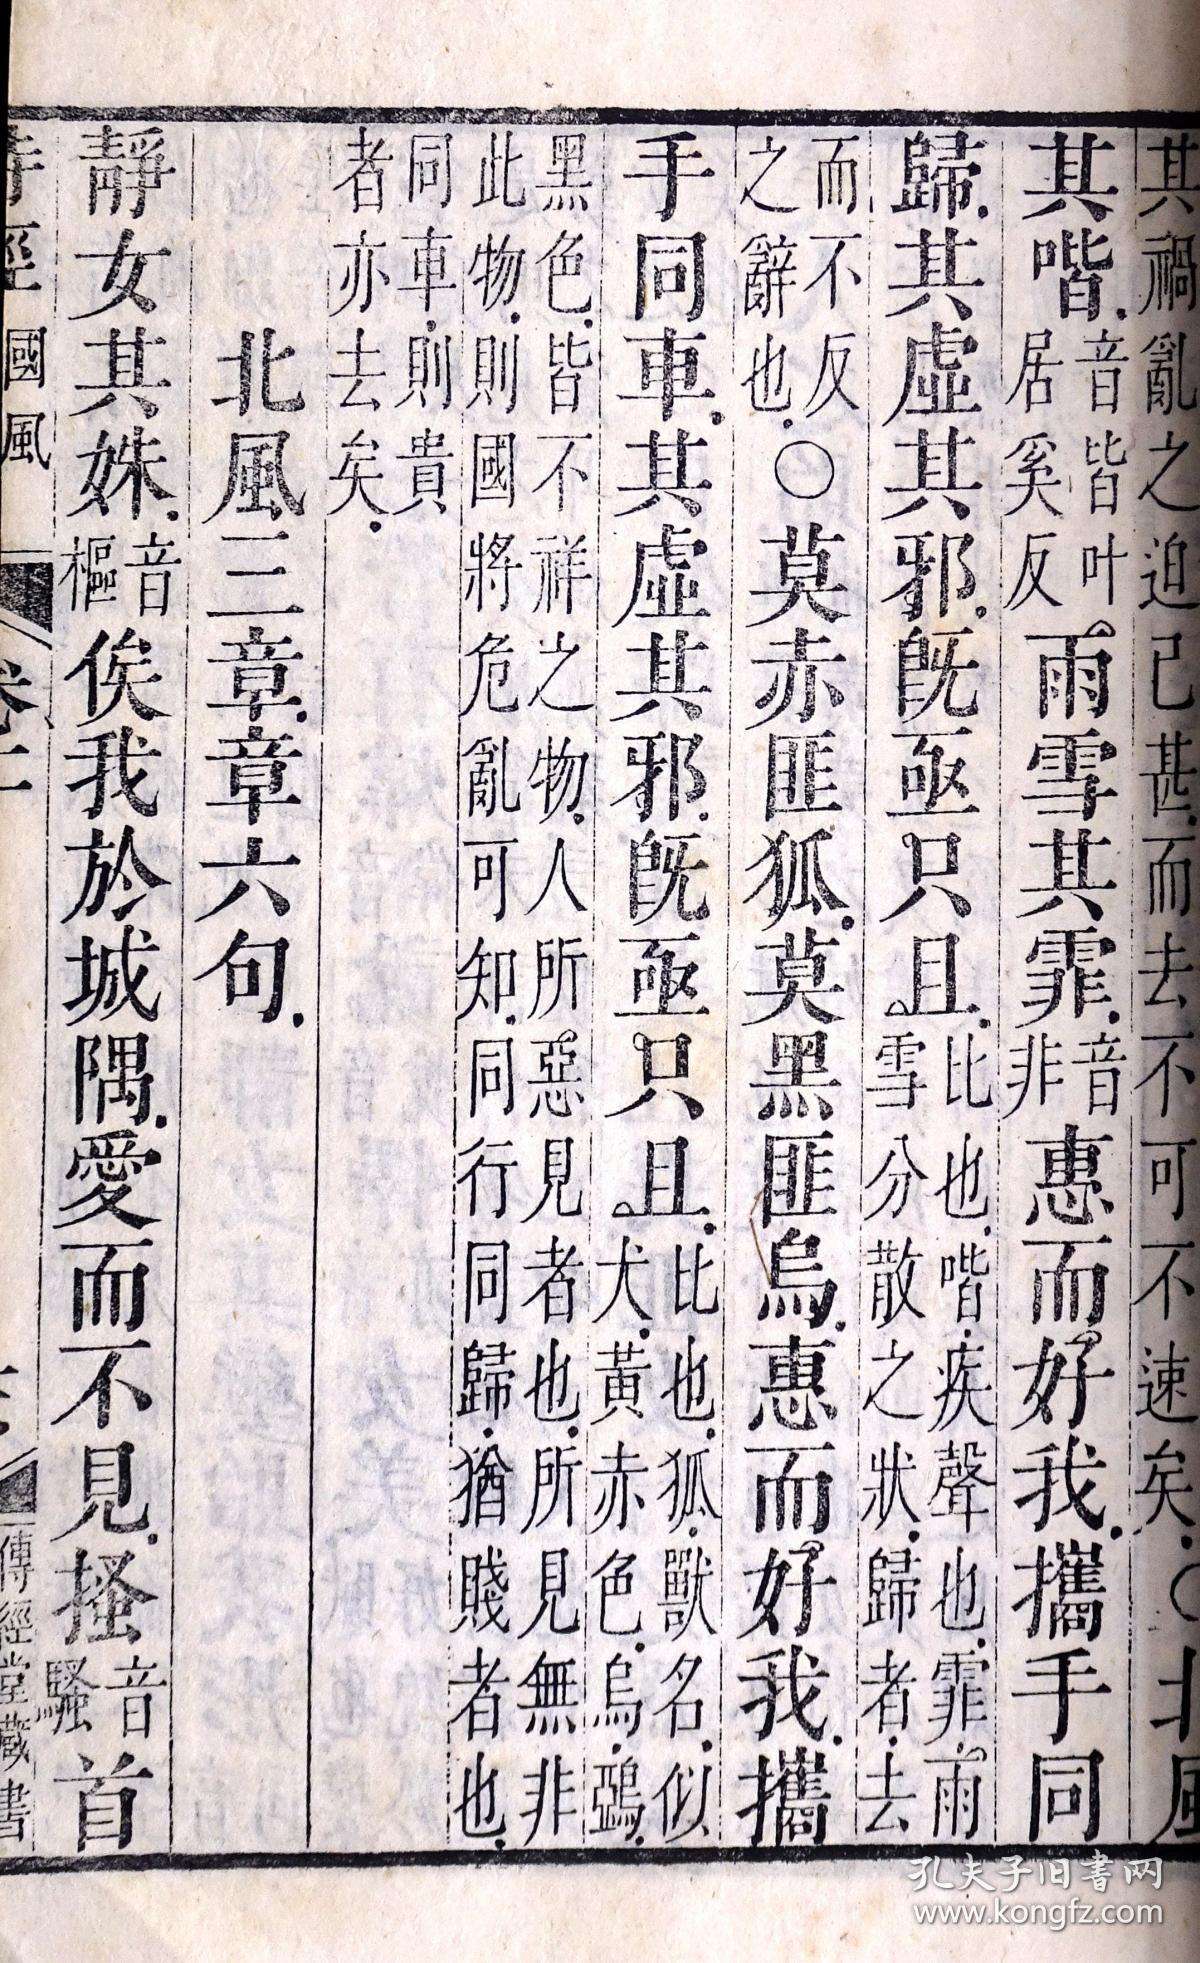 其禍亂之迫已甚而去不可不速矣○北風
其喈音皆叶居奚反雨雪其霏音非惠而好我攜手同
歸其虛其邪旣亟只且比也喈疾聲也霏雨雪分散之狀歸者去
而不反之辭也○莫赤匪狐莫黑匪烏惠而好我攜
手同車其虛其邪旣亟只且比也狐獸名似犬黃赤色烏鵶
黑色皆不祥之物人所惡見者也所見無非此物則國將危亂可知同行同歸猶賤者也
同車則貴者亦去矣
北風三章章六句
靜女其姝音樞俟我於城隅愛而不見搔音騷首
詩經 國風 卷二 傳經堂藏書
孔夫子旧书网
www.kongfz.com